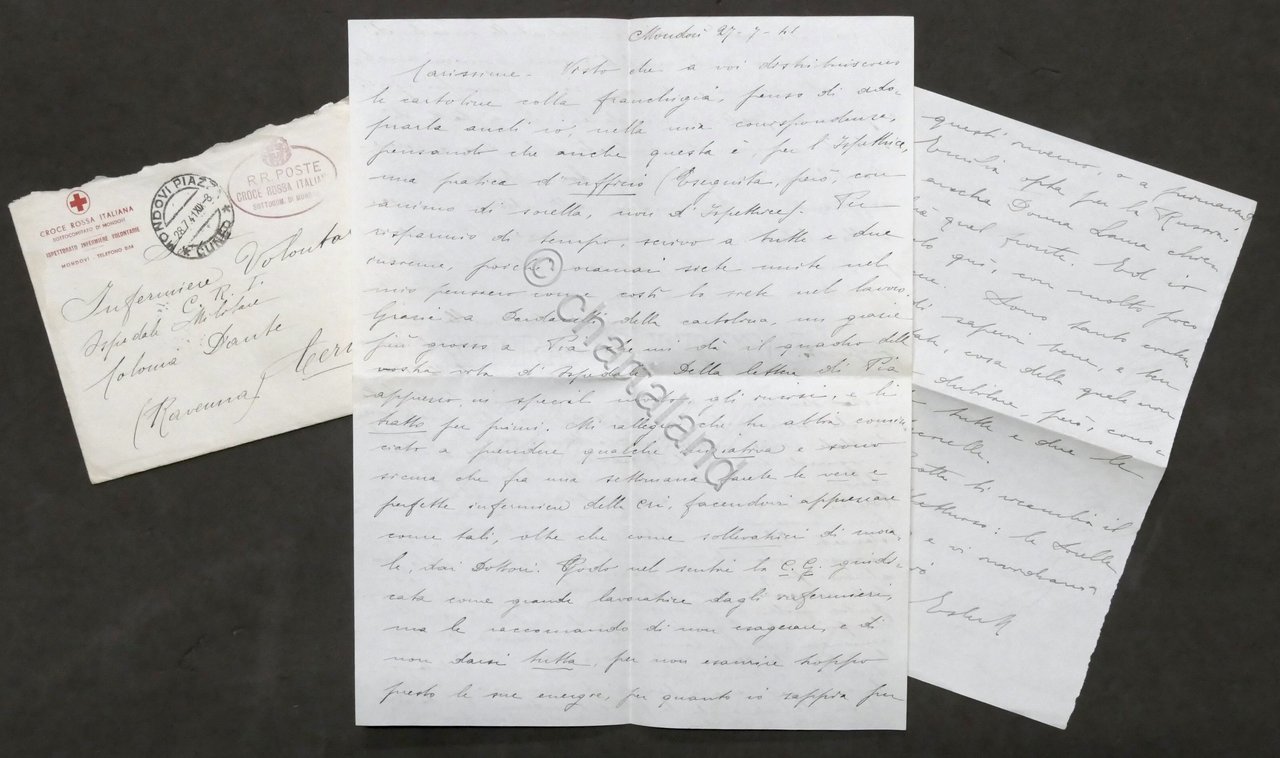 CROCE ROSSA ITALIANA
SOTTOCOMITATO DI MONDOVÌ
ISPETTORATO INFERMIERE VOLONTARIE
MONDOVÌ - TELEFONO
MONDOVI PIAZZA
28.7.41 XIX-8
* CUNEO *
R.R. POSTE
CROCE ROSSA ITALIANA
SOTTOCOM. DI MONDOVÌ
Infermiere Volontarie
C.R.I.
Ospedale Militare
Colonia Dante
Cervia
(Ravenna)
Mondovì 27-7-41
Carissime - Visto che a voi distribuiscono
le cartoline colla franchigia, penso di ado-
prarla anch'io, nella mia corrispondenza,
pensando che anche questa è per l'Ispettrice,
una pratica d'ufficio (Eseguita, però, con
animo di sorella, non d'Ispettrice) Per
risparmio di tempo, scrivo a tutte e due
insieme, poiché oramai siete unite nel
mio pensiero come costì lo siete nel lavoro.
Grazie a della cartolina, un grazie
più grosso a Pia mi dà il quadro della
vostra vita d'Ospedale. Della lettera di Pia
in special modo gli e li
tratto per primi. Mi rallegro che tu abbia comin
ciato a prendere qualche iniziativa e sono
sicura che fra una settimana farete le vere e
perfette infermiere della cri, facendovi apprezzare
come tali, oltre che come sollevatrici di mora
le, dai Dottori. Godo nel sentire la C. G. giudi-
cata come grande lavoratrice dagli infermieri,
ma le raccomando di non esagerare, e di
non darsi tutta, per non esaurire troppo
presto le sue energie, per quanto io sappia per
questo inverno, o a primavera
Emilia opta per la Russia,
Donna
qual fronte. Ed io
qui, con molto poco
Sono tanto contenta
di sapervi bene, e ben
cosa della quale non
però, come
tutte e due le
il
: le Sorelle
e vi mandano